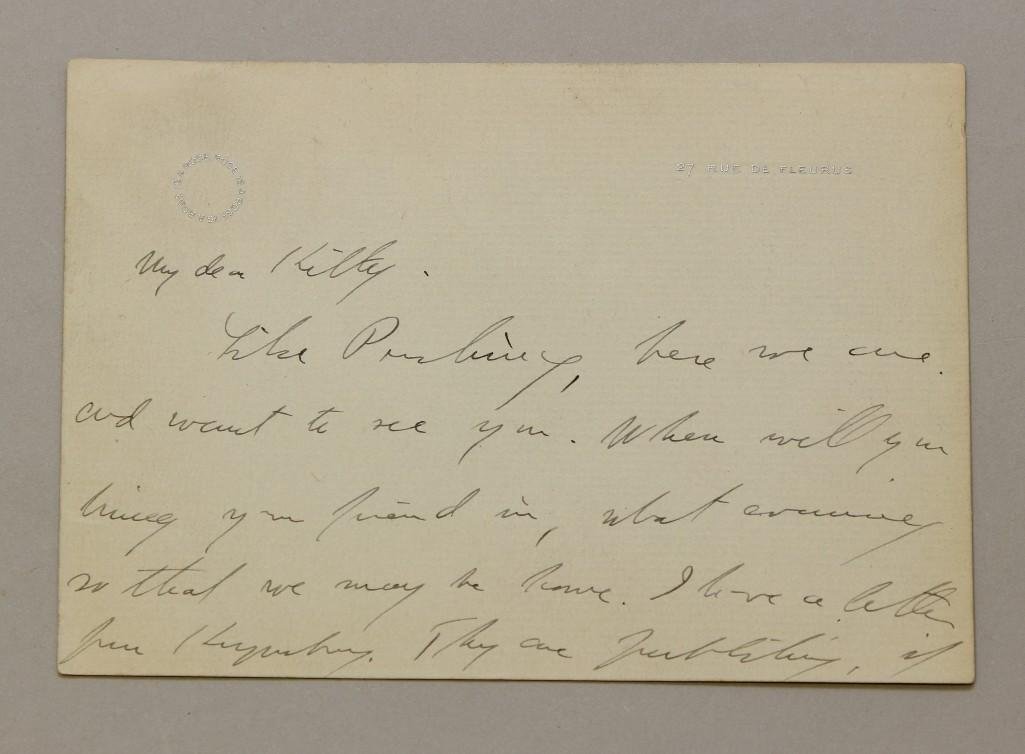 A ROSE IS A ROSE IS A ROSE IS A ROSE
27 RUE DE FLEURUS
My dear Kitty.
Like Pershing, here we are.
and want to see you. When will you
bring your friend in, what evening
so that we may be home. I have a letter
from They are publishing, if